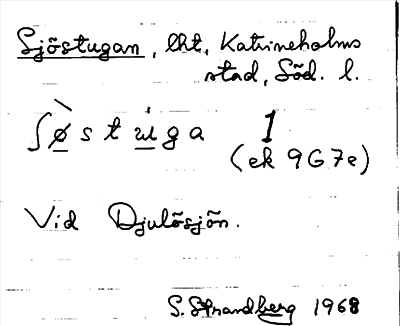 Sjöstugan, lht, Katrineholms
stad, Söd. l.
ʃø̀stu̇ga 1
(ek 9G7e)
Vid Djulösjön.
S. Strandberg 1968